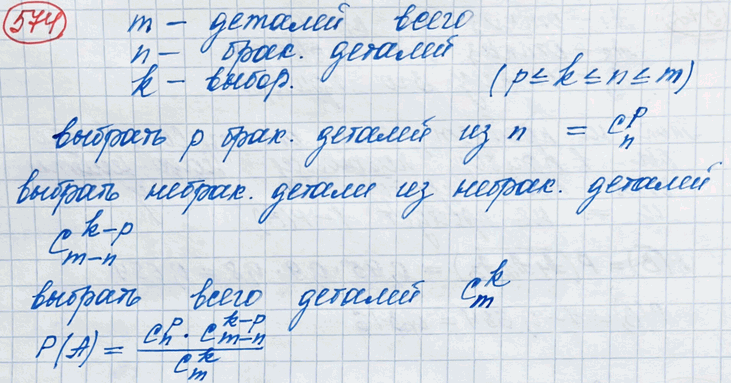 574
m – деталей всего
n – брак. деталей
k – выбор. (p ≤ k ≤ n ≤ m)
выбрать p брак. деталей из n = C_n^p
выбрать небрак. детали из небрак. деталей
C_{m-n}^{k-p}
выбрать всего деталей C_m^k
P(A) = \frac{C_n^p \cdot C_{m-n}^{k-p}}{C_m^k}